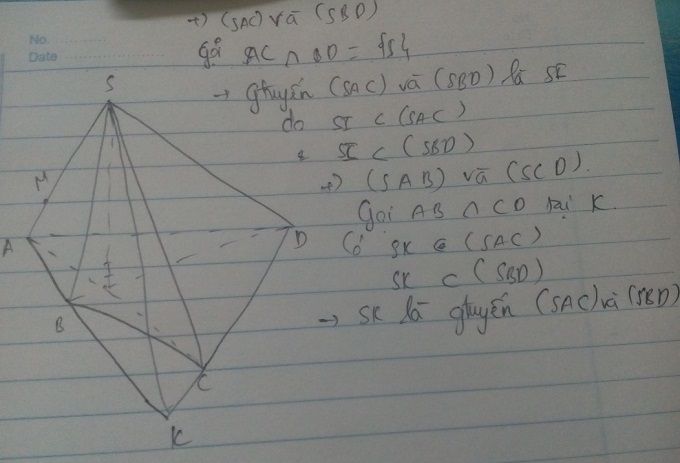 +) (SAC) và (SBD)
No.
Gọi AC ∩ BD = {I}
Date
S
→ gtuyến (SAC) và (SBD) là SI
do SI ⊂ (SAC)
& SI ⊂ (SBD)
M
+) (SAB) và (SCD).
Gọi AB ∩ CD tại K.
A
D
Có SK ⊂ (SAC)
I
SK ⊂ (SBD)
B
→ SK là gtuyến (SAC) và (SBD)
C
K